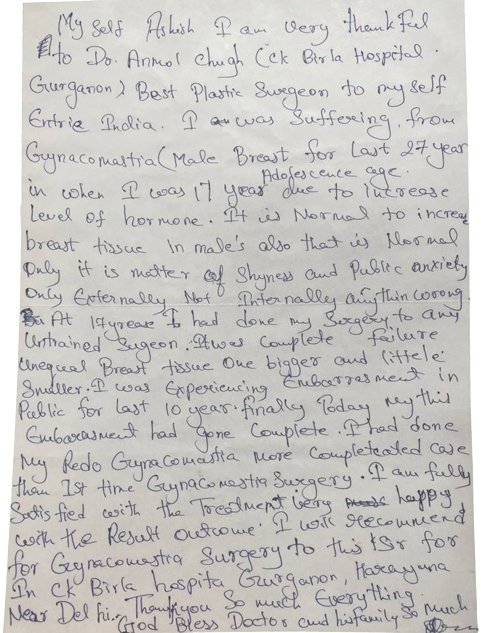 My self Ashish I am very thankful
to Dr. Anmol Chugh (ck Birla Hospital.
Gurganon) Best Plastic Surgeon to my self
Entrie India. I was suffering from
Gynacomastia (Male Breast for Last 27 year
Adolescence age.
in when I was 17 year due to increase
Level of hormone. It is Normal to increase
breast tissue in male's also that is Normal
Only it is matter of Shyness and Public anxiety
Only Externally Not Internally anythin wrong.
At 17 yrease I had done my Surgery to any
Untrained Sugeon. It was complete failure
unequal Breast tissue One bigger and littele
Smaller. I was Experiencing Embarresment in
Public for last 10 year. finally Today my this
Embarasment had gone Complete. I had done
My Redo Gynacomastia more completeated case
than 1st time Gynacomastia Surgery. I am fully
Satisfied with the Treatment very happy
with the Result Outcome. I will recommend
for Gynacomastia Surgery to this Sr for
In CK Birla hospita Gurganon, Harayuna
Near Delhi. Thank you So much Everything.
God Bless Doctor and his family so much